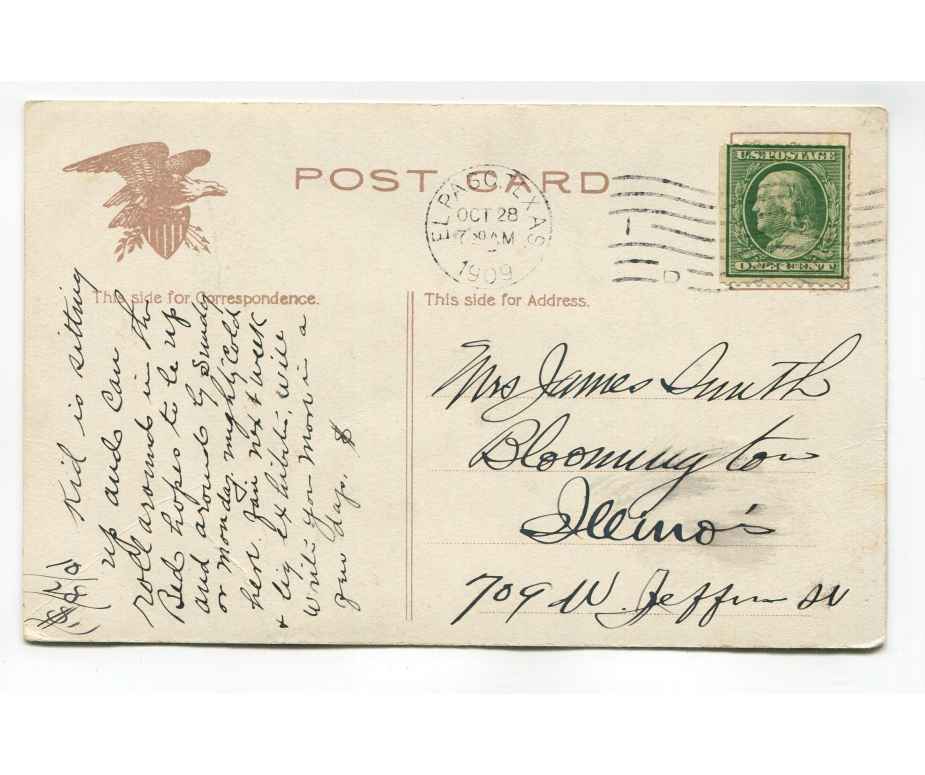 POST CARD
EL PASO, TEXAS
OCT 28
7 AM
1909
U.S. POSTAGE
ONE CENT
This side for Correspondence.
This side for Address.
Kid is sitting
up and can
roll around in the
Bed hopes to be up
and around by Sunday
or Monday. mighty Cold
here. Fair next week
+ big exhibit, will
write you more in a
few days.
Mrs James Smith
Bloomington
Illinois
709 W. Jeffer St